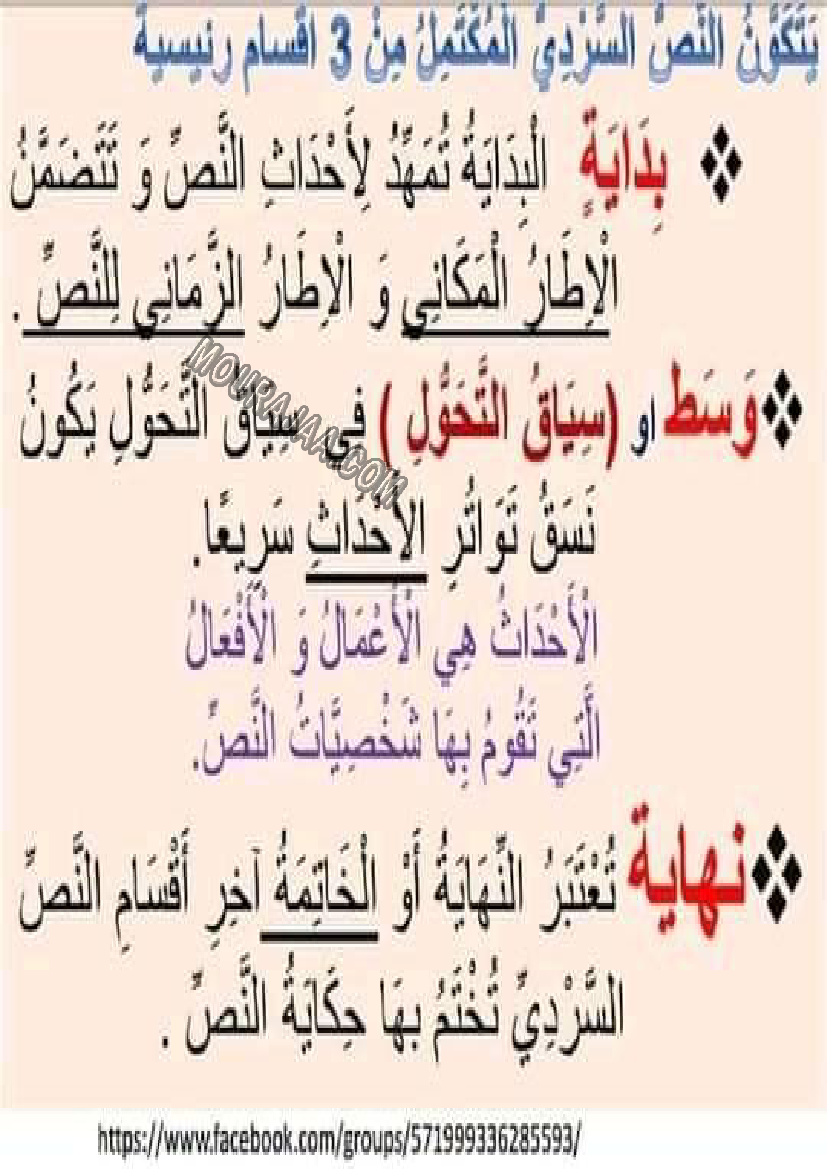 يَتَكَوَّنُ النَّصُّ السَّرْدِيُّ الْمُكْتَمِلُ مِنْ 3 أقسام رئيسية
❖ بِدَايَةٍ الْبِدَايَةُ تُمَهِّدُ لِأَحْدَاثِ النَّصِّ وَ تَتَضَمَّنُ
الْاِطَارُ الْمَكَانِي وَ الْاِطَارُ الزَّمَانِي لِلنَّصِّ .
❖ وَسَط او (سِيَاقُ التَّحَوُّلِ ) فِي سِيَاقُ التَّحَوُّلِ يَكُونُ
نَسَقُ تَوَاتُرِ الأَحْدَاثِ سَرِيعًا.
الْأَحْدَاثُ هِي الْأَعْمَالُ وَ الْأَفْعَالُ
الَّتِي تَقُومُ بِهَا شَخْصِيَّاتُ النَّصِّ.
❖ نهاية تُعْتَبَرُ النِّهَايَةُ أَوْ الْخَاتِمَةُ آخِرِ أَقْسَامِ النَّصِّ
السَّرْدِيِّ تُخْتَمُ بِهَا حِكَايَةُ النَّصِّ .
MOURAJAA.COM
https://www.facebook.com/groups/571999336285593/